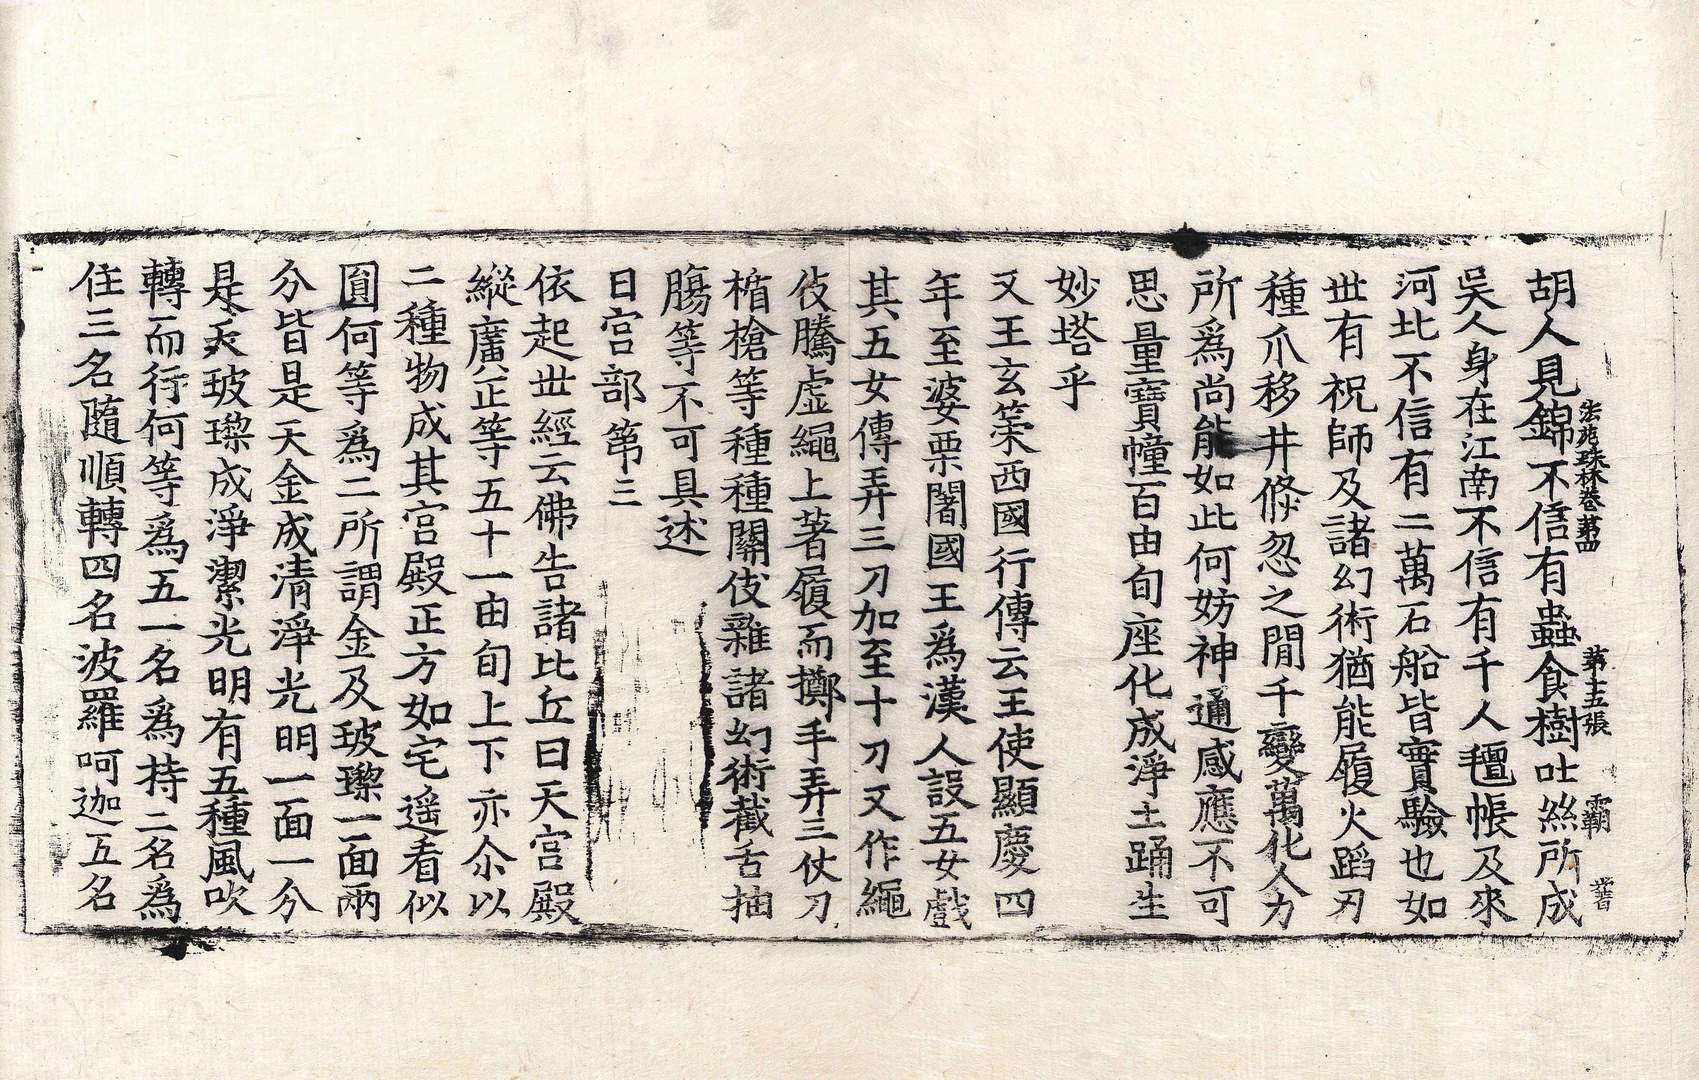 胡人見錦不信有蟲食樹吐絲所成
法苑珠林卷第四 第十五張 霸
吳人身在江南不信有千人氊帳及來
河北不信有二萬石船皆實驗也如
世有祝師及諸幻術猶能履火蹈刃
種爪移井倏忽之閒千變萬化人力
所爲尚能如此何妨神通感應不可
思量寶幢百由旬座化成淨土踊生
妙塔乎
又王玄策西國行傳云王使顯慶四
年至婆栗闍國王爲漢人設五女戲
其五女傳弄三刀加至十刀又作繩
伎騰虛繩上著履而擲手弄三仗刀
楯槍等種種關伎雜諸幻術截舌抽
膓等不可具述
日宮部第三
依起世經云佛告諸比丘日天宮殿
縱廣正等五十一由旬上下亦尒以
二種物成其宮殿正方如宅遥看似
圓何等爲二所謂金及玻瓈一面兩
分皆是天金成清淨光明一面一分
是天玻瓈成淨潔光明有五種風吹
轉而行何等爲五一名爲持二名爲
住三名隨順轉四名波羅呵迦五名